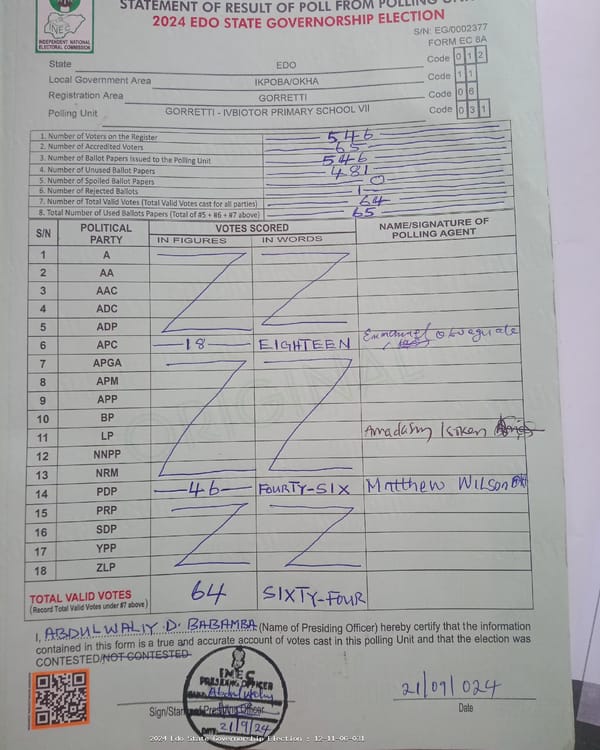 STATEMENT OF RESULT OF POLL FROM POLLING UNIT
2024 EDO STATE GOVERNORSHIP ELECTION
INEC
INDEPENDENT NATIONAL
ELECTORAL COMMISSION
S/N: EG/0002377
FORM EC 8A
State EDO Code 0 1 2
Local Government Area IKPOBA/OKHA Code 1 1
Registration Area GORRETTI Code 0 6
Polling Unit GORRETTI - IVBIOTOR PRIMARY SCHOOL VII Code 0 3 1
1. Number of Voters on the Register 546
2. Number of Accredited Voters 65
3. Number of Ballot Papers Issued to the Polling Unit 546
4. Number of Unused Ballot Papers 481
5. Number of Spoiled Ballot Papers 0
6. Number of Rejected Ballots 1
7. Number of Total Valid Votes (Total Valid Votes cast for all parties) 64
8. Total Number of Used Ballots Papers (Total of #5 + #6 + #7 above) 65
S/N POLITICAL PARTY VOTES SCORED NAME/SIGNATURE OF POLLING AGENT
IN FIGURES IN WORDS
1 A
2 AA
3 AAC
4 ADC
5 ADP
6 APC 18 EIGHTEEN
7 APGA
8 APM
9 APP
10 BP
11 LP
12 NNPP
13 NRM
14 PDP 46 FOURTY-SIX Matthew Wilson
15 PRP
16 SDP
17 YPP
18 ZLP
ORIGINAL
TOTAL VALID VOTES 64 SIXTY-FOUR
(Record Total Valid Votes under #7 above)
I, ABDULWALIY D. BABAMBA (Name of Presiding Officer) hereby certify that the information
contained in this form is a true and accurate account of votes cast in this polling Unit and that the election was
CONTESTED/NOT CONTESTED
INEC
PRESIDING OFFICER
Abdulwaliy
DATE 21/9/24
21/09/024
Sign/Stamp of Presiding Officer Date
2024 Edo State Governorship Election : 12-11-06-031